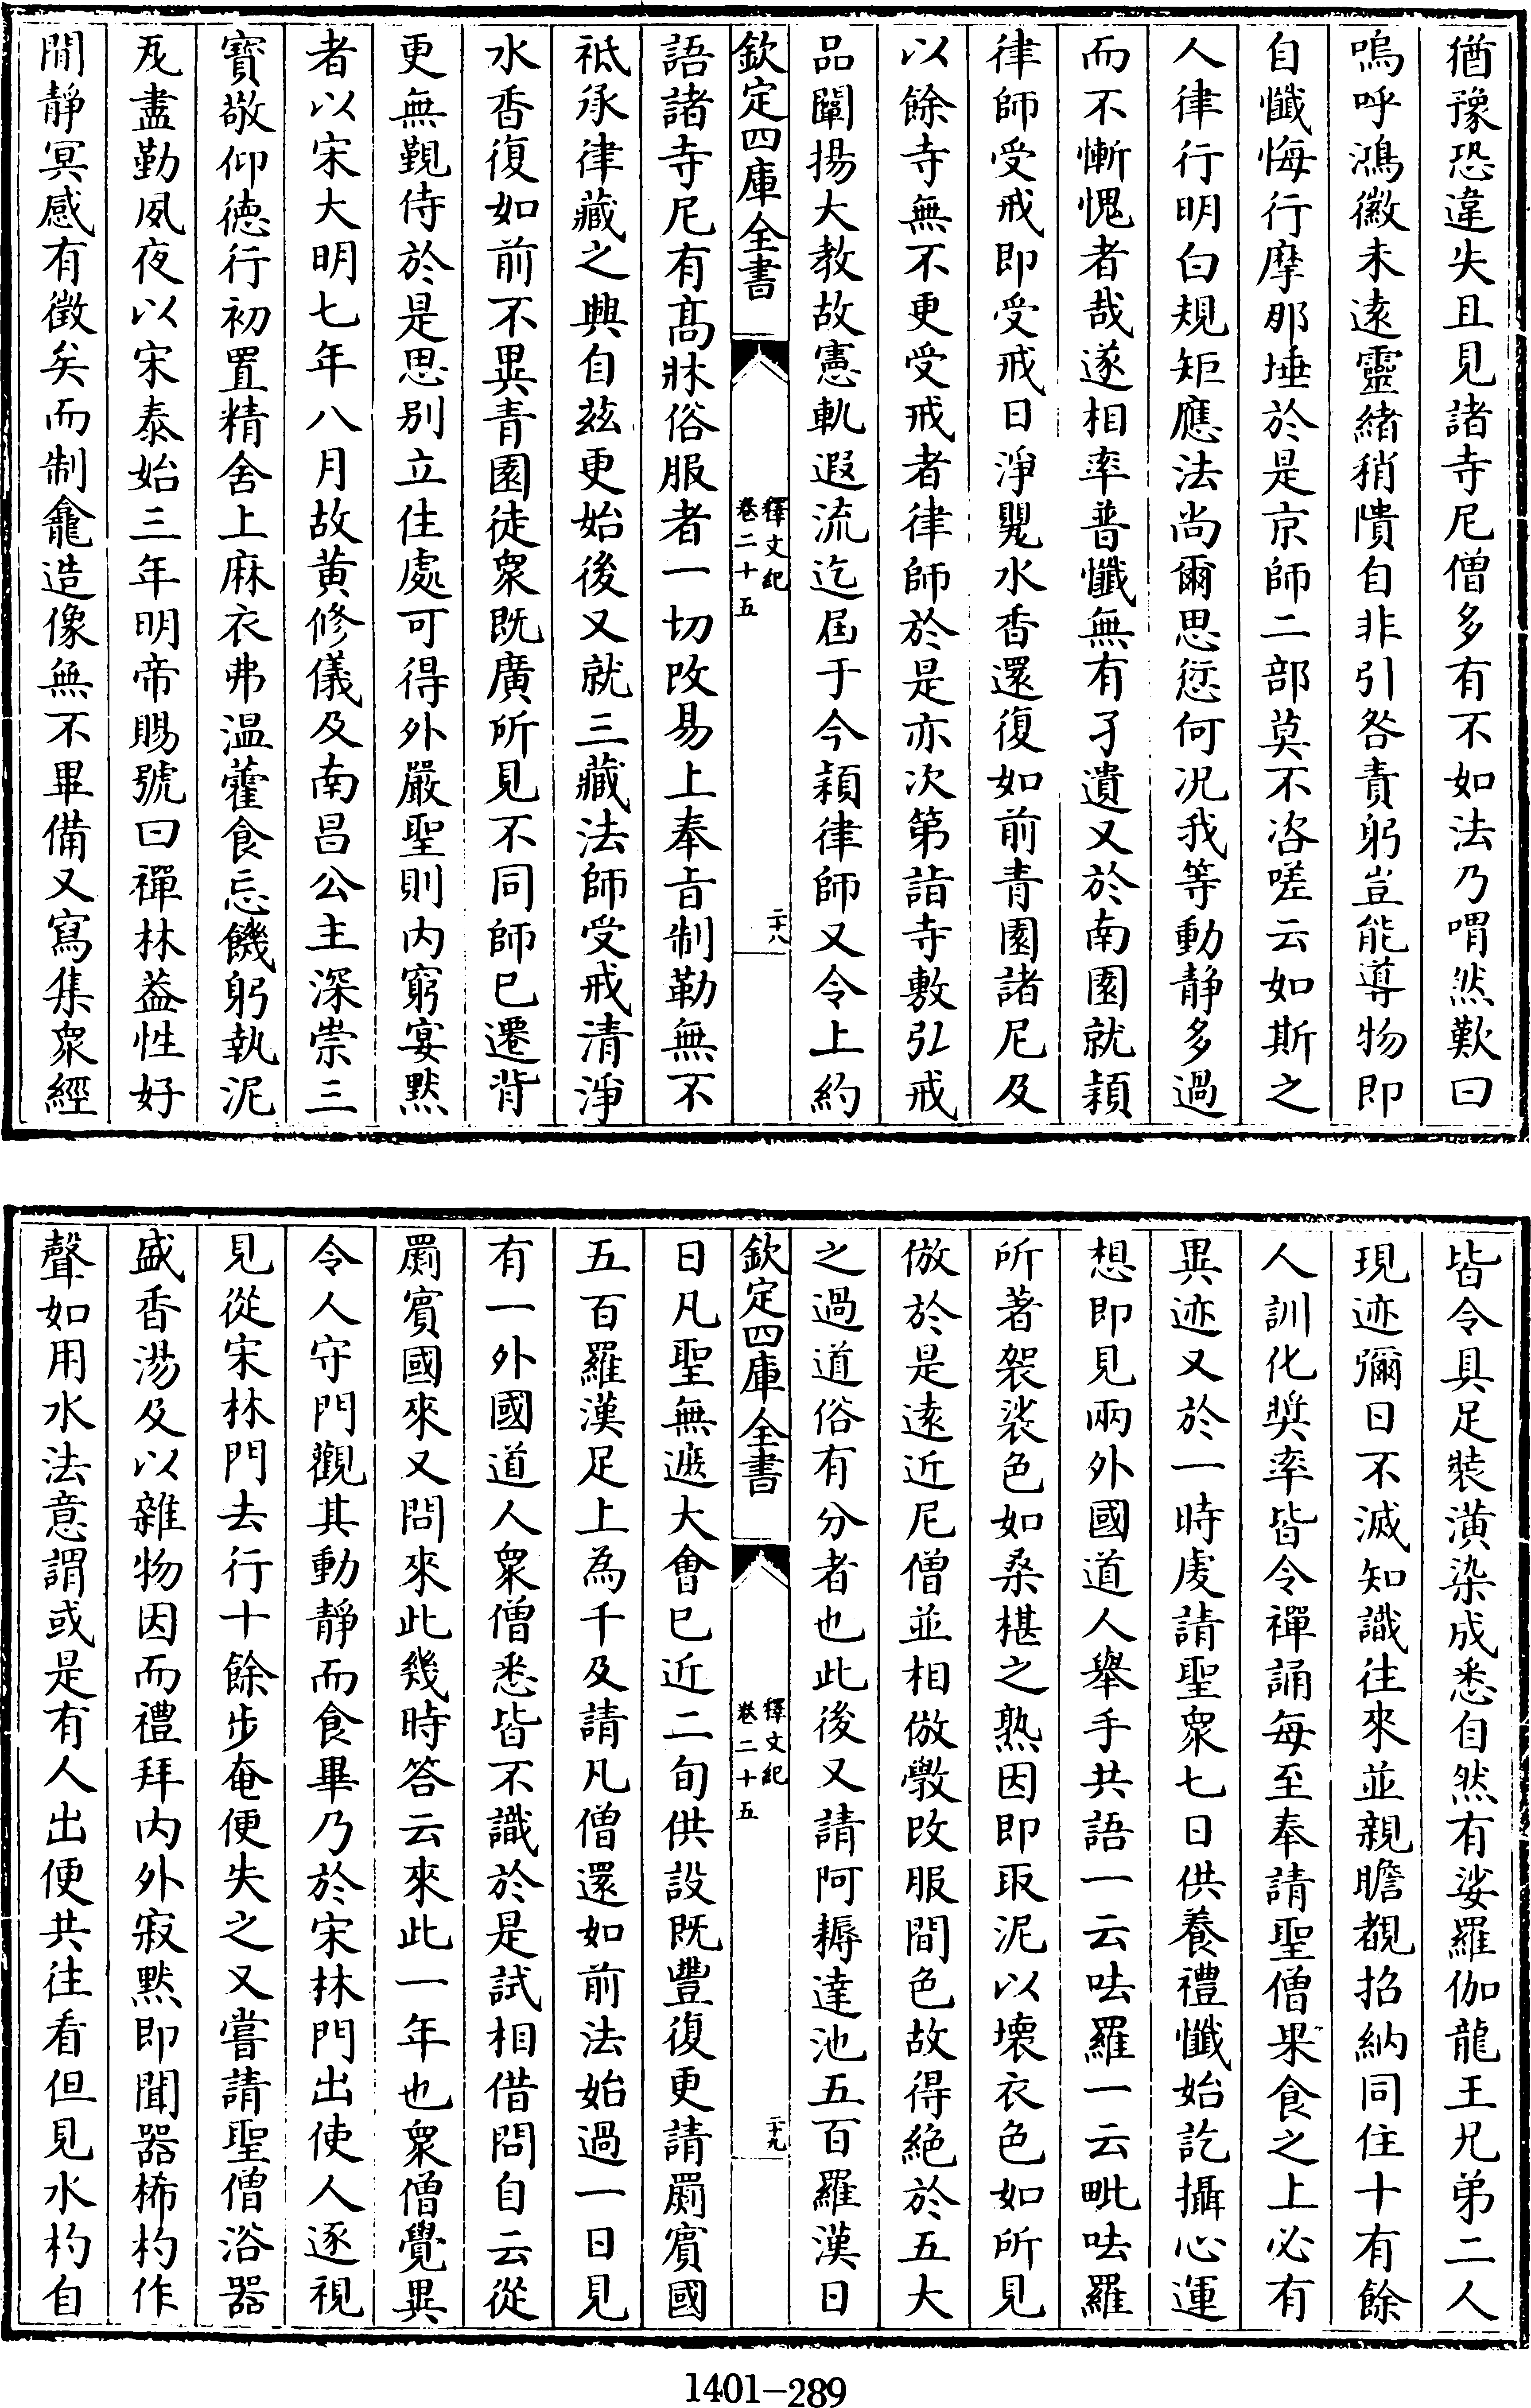 猶豫恐違失且見諸寺尼僧多有不如法乃喟然歎曰
嗚呼鴻徽未遠靈緒稍隤自非引咎責躬豈能導物即
自懺悔行摩那埵於是京師二部莫不咨嗟云如斯之
人律行明白規矩應法尚爾思愆何况我等動静多過
而不慚愧者哉遂相率普懺無有孑遺又於南園就穎
律師受戒即受戒日淨甖水香還復如前青園諸尼及
以餘寺無不更受戒者律師於是亦次第詣寺敷弘戒
品闡揚大教故憲軌遐流迄屆于今穎律師又令上約
欽定四庫全書
釋文紀
卷二十五
二十八
語諸寺尼有髙牀俗服者一切改易上奉㫖制勒無不
祗承律藏之興自兹更始後又就三藏法師受戒清淨
水香復如前不異青園徒衆既廣所見不同師已遷背
更無覲侍於是思别立住處可得外嚴聖則内窮宴黙
者以宋大明七年八月故黄修儀及南昌公主深崇三
寶敬仰徳行初置精舍上麻衣弗温藿食忘饑躬執泥
瓦盡勤夙夜以宋泰始三年明帝賜號曰禪林葢性好
閒靜冥感有徵矣而制龕造像無不畢備又寫集衆經
皆令具足裝潢染成悉自然有娑羅伽龍王兄弟二人
現迹彌日不滅知識往來並親瞻覩招納同住十有餘
人訓化奬率皆令禪誦每至奉請聖僧果食之上必有
異迹又於一時虔請聖衆七日供養禮懺始訖攝心運
想即見兩外國道人舉手共語一云呿羅一云毗呿羅
所著袈裟色如桑椹之熟因即取泥以壊衣色如所見
倣於是遠近尼僧並相倣斆改服間色故得絶於五大
之過道俗有分者也此後又請阿耨達池五百羅漢日
欽定四庫全書
釋文紀
卷二十五
二十九
日凡聖無遮大會已近二旬供設既豐復更請罽賓國
五百羅漢足上為千及請凡僧還如前法始過一日見
有一外國道人衆僧悉皆不識於是試相借問自云從
罽賓國來又問來此幾時答云來此一年也衆僧覺異
令人守門觀其動靜而食畢乃於宋林門出使人逐視
見從宋林門去行十餘步奄便失之又嘗請聖僧浴器
盛香湯及以雜物因而禮拜内外寂黙即聞器桸杓作
聲如用水法意謂或是有人出便共往看但見水杓自
1401-289